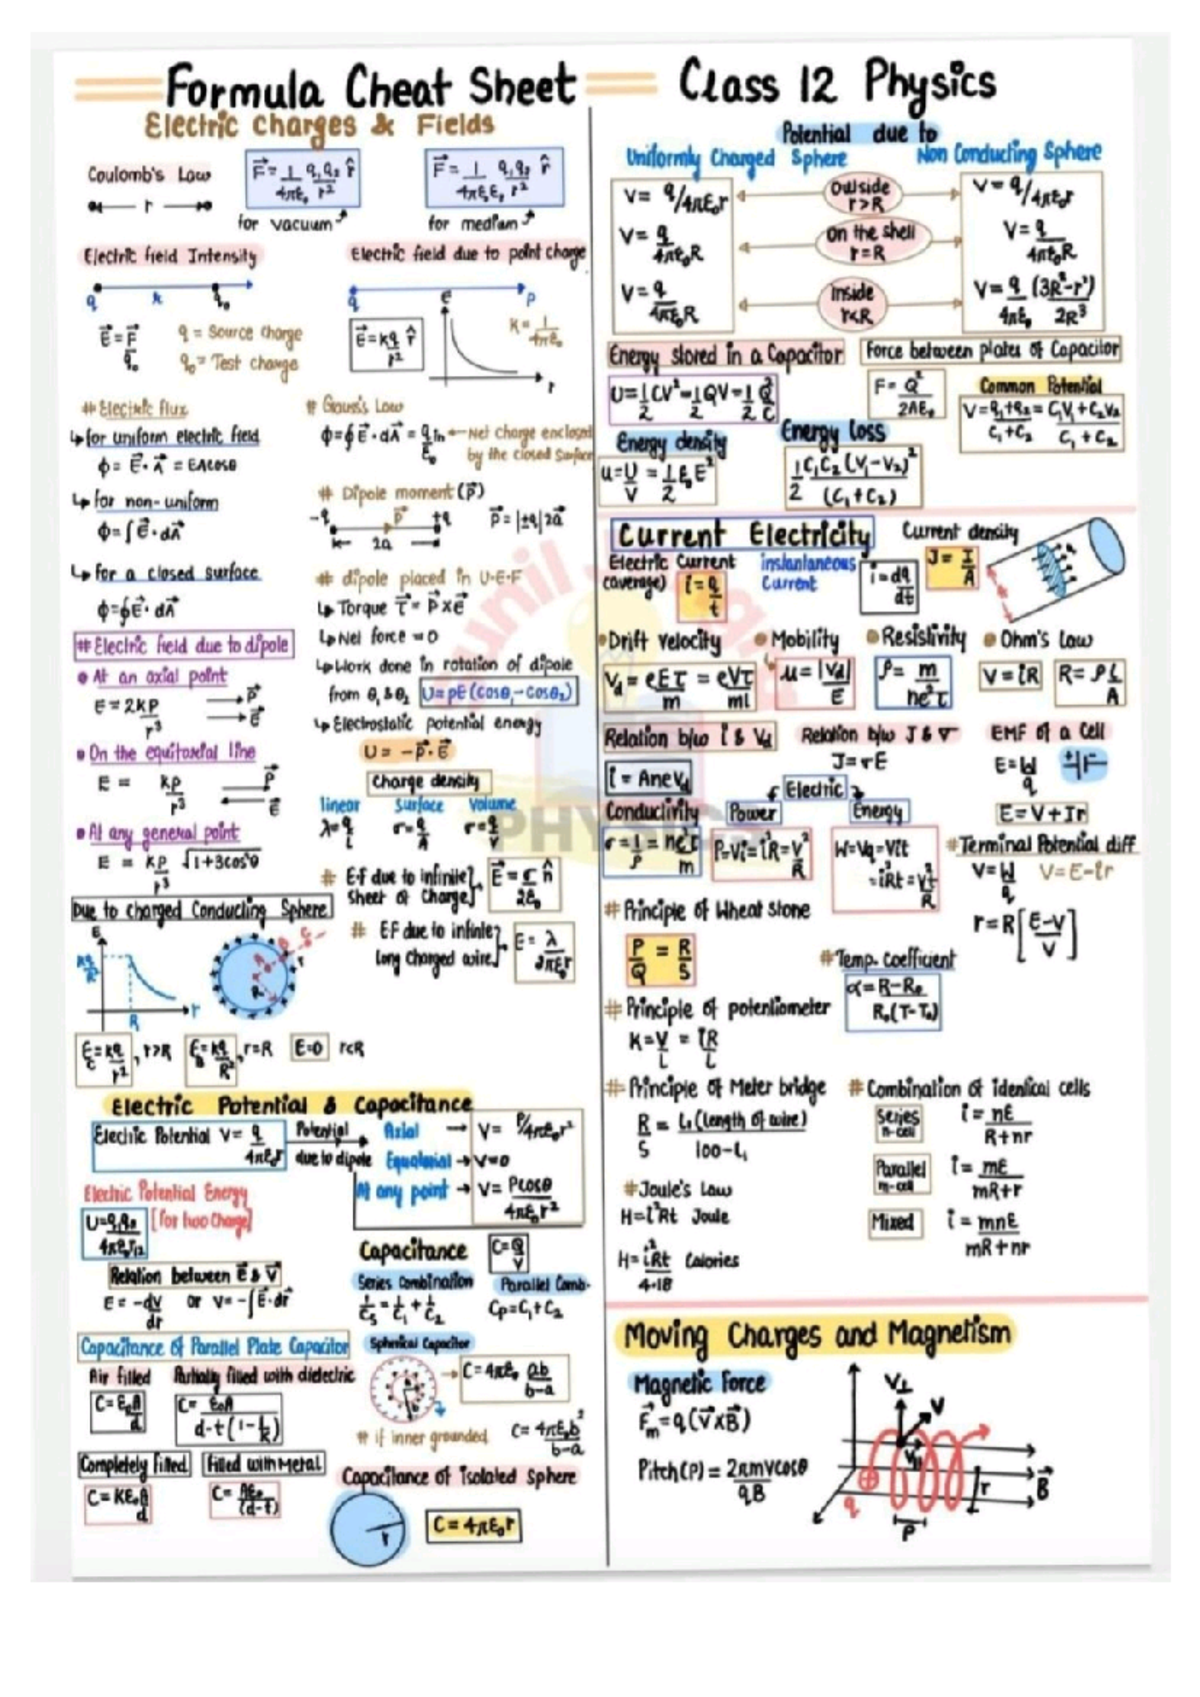 Formula Cheat Sheet
Class 12 Physics
Electric Charges & Fields
Coulomb's Law
F⃗ = 1/4πε₀ q₁q₂/r² r̂
for vacuum
F⃗ = 1/4πε₀εᵣ q₁q₂/r² r̂
for medium
r
Electric field Intensity
q
q₀
E⃗ = F⃗/q₀
q = Source charge
q₀ = Test charge
Electric field due to point charge
q
P
E⃗ = kq/r² r̂
E
r
K = 1/4πε₀
# Electric flux
↳ for uniform electric field
ϕ = E⃗·A⃗ = EAcosθ
↳ for non-uniform
ϕ = ∫E⃗·dA⃗
↳ for a closed surface
ϕ = ∮E⃗·dA⃗
# Gauss's Law
ϕ = ∮E⃗·dA⃗ = qin/ε₀ ← Net charge enclosed
by the closed surface
# Dipole moment (P⃗)
-q P⃗ +q
2a
P⃗ = |±q|2a⃗
# dipole placed in U.E.F
↳ Torque τ⃗ = P⃗×E⃗
↳ Net force = 0
↳ Work done in rotation of dipole
from θ₁ & θ₂ U = PE(cosθ₁-cosθ₂)
↳ Electrostatic potential energy
U = -P⃗·E⃗
# Electric field due to dipole
At an axial point
E = 2KP/r³
P⃗
E⃗
On the equitorial line
E = KP/r³
P⃗
E⃗
At any general point
E = KP/r³ √1+3cos²θ
Charge density
linear Surface Volume
λ = q/L σ = q/A σ = q/V
# E.f due to infinite
sheet of Charge
E⃗ = σ/2ε₀ n̂
# E.F due to infinite
long charged wire
E = λ/2πε₀r
Due to charged Conducting Sphere
E
kq/R²
R
r
E = kq/r², r>R
E = kq/R², r=R
E=0 r<R
Electric Potential & Capacitance
Electric Potential V = q/4πε₀r
Potential
due to dipole
Axial → V = P/4πε₀r²
Equatorial → V=0
At any point → V = Pcosθ/4πε₀r²
Electric Potential Energy
U = q₁q₂/4πε₀r₁₂ [for two Charge]
Relation between E⃗ & V⃗
E = -dv/dr or V = -∫E⃗·dr⃗
Capacitance C = Q/V
Series Combination
1/Cs = 1/C₁ + 1/C₂
Parallel Comb.
Cp = C₁+C₂
Capacitance of Parallel Plate Capacitor
Air filled
C = ε₀A/d
Partially filled with dielectric
C = ε₀A/d-t(1-1/k)
Completely filled
C = Kε₀A/d
filled with Metal
C = Aε₀/(d-t)
Spherical Capacitor
C = 4πε₀ ab/b-a
# if inner grounded C = 4πε₀b²/b-a
Capacitance of isolated Sphere
r
C = 4πε₀r
Potential due to
Uniformly Charged Sphere
Non Conducting Sphere
V = q/4πε₀r
Outside r>R
V = q/4πε₀r
V = q/4πε₀R
On the shell r=R
V = q/4πε₀R
V = q/4πε₀R
Inside r<R
V = q/4πε₀ (3R²-r²)/2R³
Energy stored in a Capacitor
U = 1/2 CV² = 1/2 QV = 1/2 Q²/C
Force between plates of Capacitor
F = Q²/2Aε₀
Common Potential
V = q₁+q₂/C₁+C₂ = C₁V₁+C₂V₂/C₁+C₂
Energy density
u = U/V = 1/2 ε₀E²
Energy loss
1/2 C₁C₂(V₁-V₂)²/(C₁+C₂)
Current Electricity
Electric Current
(average)
i = q/t
instantaneous
Current
i = dq/dt
Current density
J = I/A
Drift Velocity
Vd = eEτ/m = eVτ/ml
Mobility
μ = |Vd|/E
Resistivity
ρ = m/ne²τ
Ohm's Law
V = iR R = ρL/A
Relation b/w i & Vd
i = AneVd
Relation b/w J & σ
J = σE
EMF of a Cell
E = W/q
E = V+Ir
Conductivity
σ = 1/ρ = ne²τ/m
Electric
Power
P = Vi = i²R = V²/R
Energy
W = Vq = Vit
= i²Rt = V²t/R
# Terminal Potential diff
V = W/q V = E-ir
r = R[E-V/V]
# Principle of Wheat stone
P/Q = R/S
# Temp. coefficient
α = R-R₀/R₀(T-T₀)
# Principle of potentiometer
K = V/L = iR/L
# Principle of Meter bridge
R/S = L₁(length of wire)/100-L₁
# Combination of identical cells
Series
n-cell
i = nE/R+nr
Parallel
m-cell
i = mE/mR+r
Mixed
i = mnE/mR+nr
# Joule's Law
H = i²Rt Joule
H = i²Rt/4.18 Calories
Moving Charges and Magnetism
Magnetic Force
F⃗m = q(V⃗×B⃗)
Pitch(P) = 2πmvcosθ/qB
V⊥
V
V∥
q
P
r
B⃗
PHYSICS